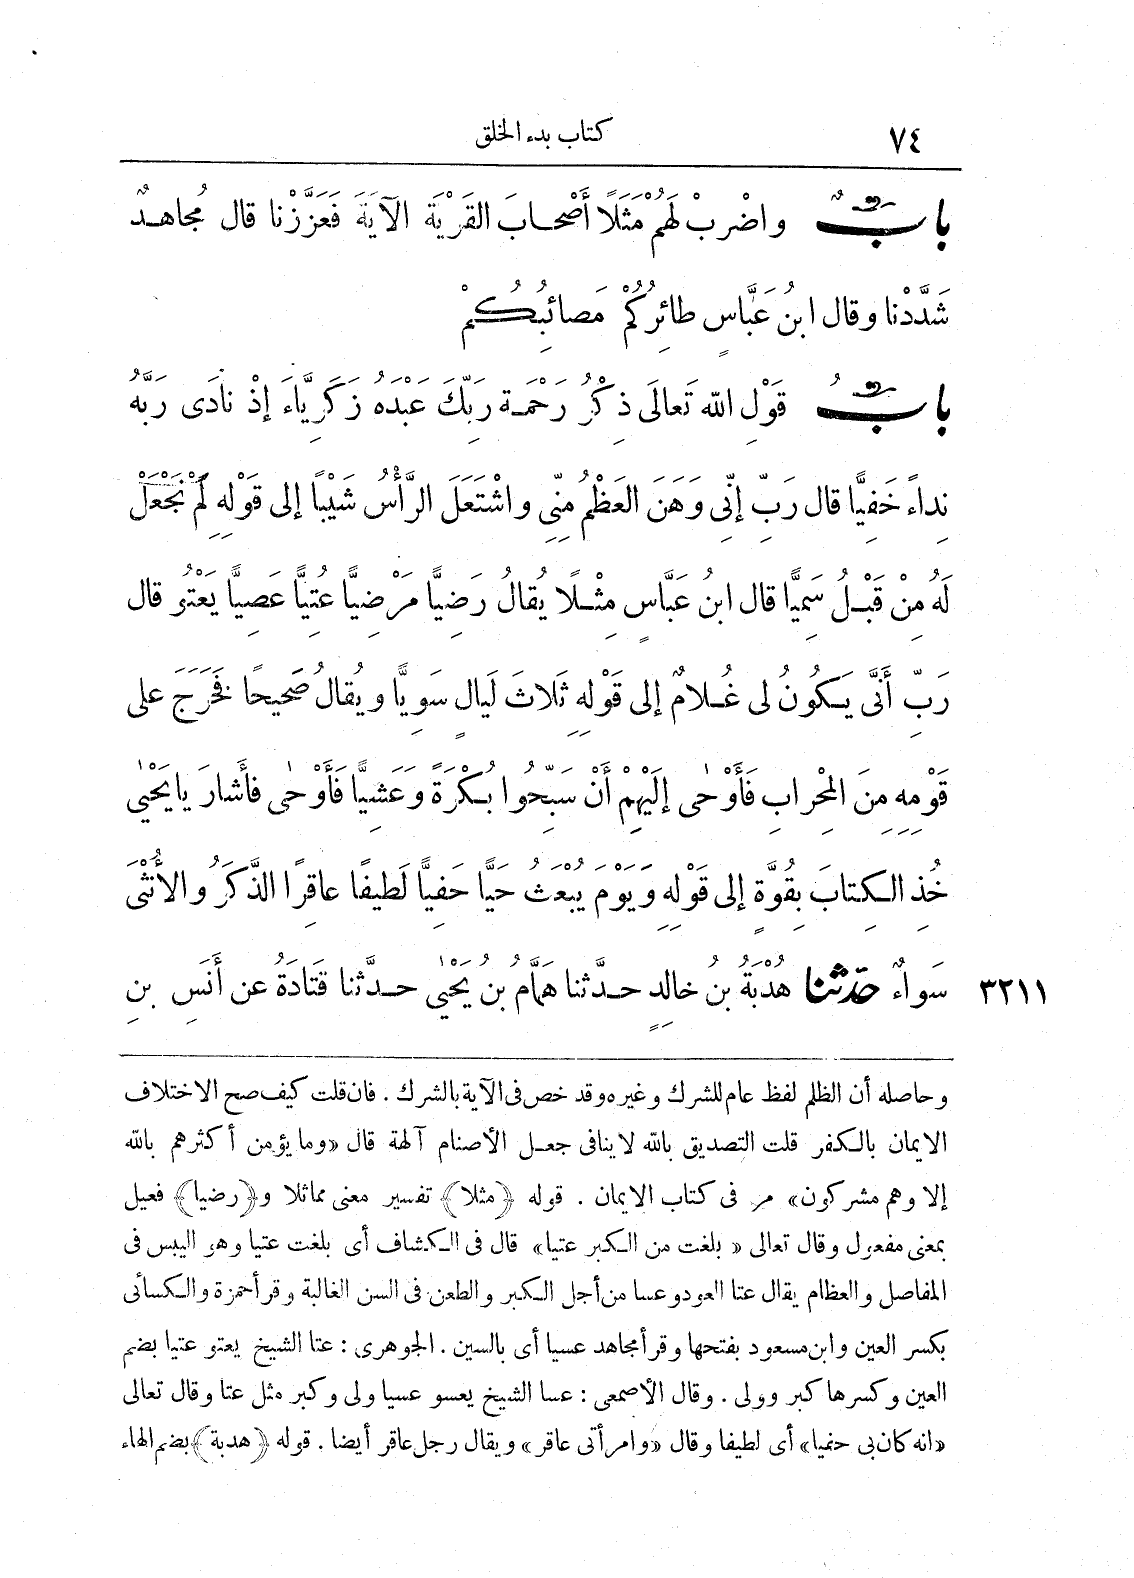 ٧٤ كتاب بدء الخلق
بابٌ واضْرِبْ لَهُمْ مَثَلًا أَصْحابَ القَرْيَةِ الآيَةَ فَعَزَّزْنا قال مُجاهدٌ
شَدَّدْنا وقال ابنُ عَبَّاسٍ طائِرُكُمْ مَصائِبُكُمْ
بابُ قَوْلِ الله تَعالَى ذِكْرُ رَحْمَةِ رَبِّكَ عَبْدَهُ زَكَرِيَّاءَ إذْ نادَى رَبَّهُ
نِداءً خَفِيًّا قال رَبِّ إنِّى وَهَنَ العَظْمُ مِنِّى واشْتَعَلَ الرَّأْسُ شَيْبًا إلى قَوْلِهِ لَمْ نَجْعَلْ
لَهُ مِنْ قَبْلُ سَمِيًّا قال ابنُ عَبَّاسٍ مِثْلًا يُقالُ رَضِيًّا مَرْضِيًّا عُتِيًّا عَصِيًّا يَعْتُو قال
رَبِّ أَنَّى يَكُونُ لى غُلامٌ إلى قَوْلِهِ ثَلاثَ لَيالٍ سَوِيًّا ويُقالُ صَحِيحًا فَخَرَجَ على
قَوْمِهِ مِنَ المِحْرابِ فَأَوْحٰى إلَيْهِمْ أَنْ سَبِّحُوا بُكْرَةً وَعَشِيًّا فَأَوْحٰى فأَشارَ يا يَحْيٰى
خُذِ الكِتابَ بِقُوَّةٍ إلى قَوْلِهِ وَيَوْمَ يُبْعَثُ حَيًّا حَفِيًّا لَطِيفًا عاقِرًا الذَّكَرُ والأُنْثَى
٣٢١١ سَواءٌ حدّثنا هُدْبَةُ بنُ خالِدٍ حدَّثنا هَمَّامُ بنُ يَحْيٰى حدَّثنا قَتادَةُ عن أَنَسِ بنِ
وحاصله أن الظلم لفظ عام للشرك وغيره وقد خص فى الآية بالشرك . فان قلت كيف صح الاختلاف
الايمان بالكفر قلت التصديق بالله لا ينافى جعل الأصنام آلهة قال «وما يؤمن أكثرهم بالله
إلا وهم مشركون» مر فى كتاب الايمان . قوله ﴿مثلا﴾ تفسير معنى مماثلا و﴿رضيا﴾ فعيل
بمعنى مفعول وقال تعالى « بلغت من الكبر عتيا» قال فى الكشاف أى بلغت عتيا وهو اليبس فى
المفاصل والعظام يقال عتا العود وعسا من أجل الكبر والطعن فى السن الغالبة وقرأ حمزة والكسائى
بكسر العين وابن مسعود بفتحها وقرأ مجاهد عسيا أى بالسين . الجوهرى : عتا الشيخ يعتو عتيا بضم
العين وكسرها كبر وولى . وقال الأصمعى : عسا الشيخ يعسو عسيا ولى وكبر مثل عتا وقال تعالى
«انه كان بى حفيا» أى لطيفا وقال «وامرأتى عاقر» ويقال رجل عاقر أيضا . قوله ﴿هدبة﴾ بضم الهاء